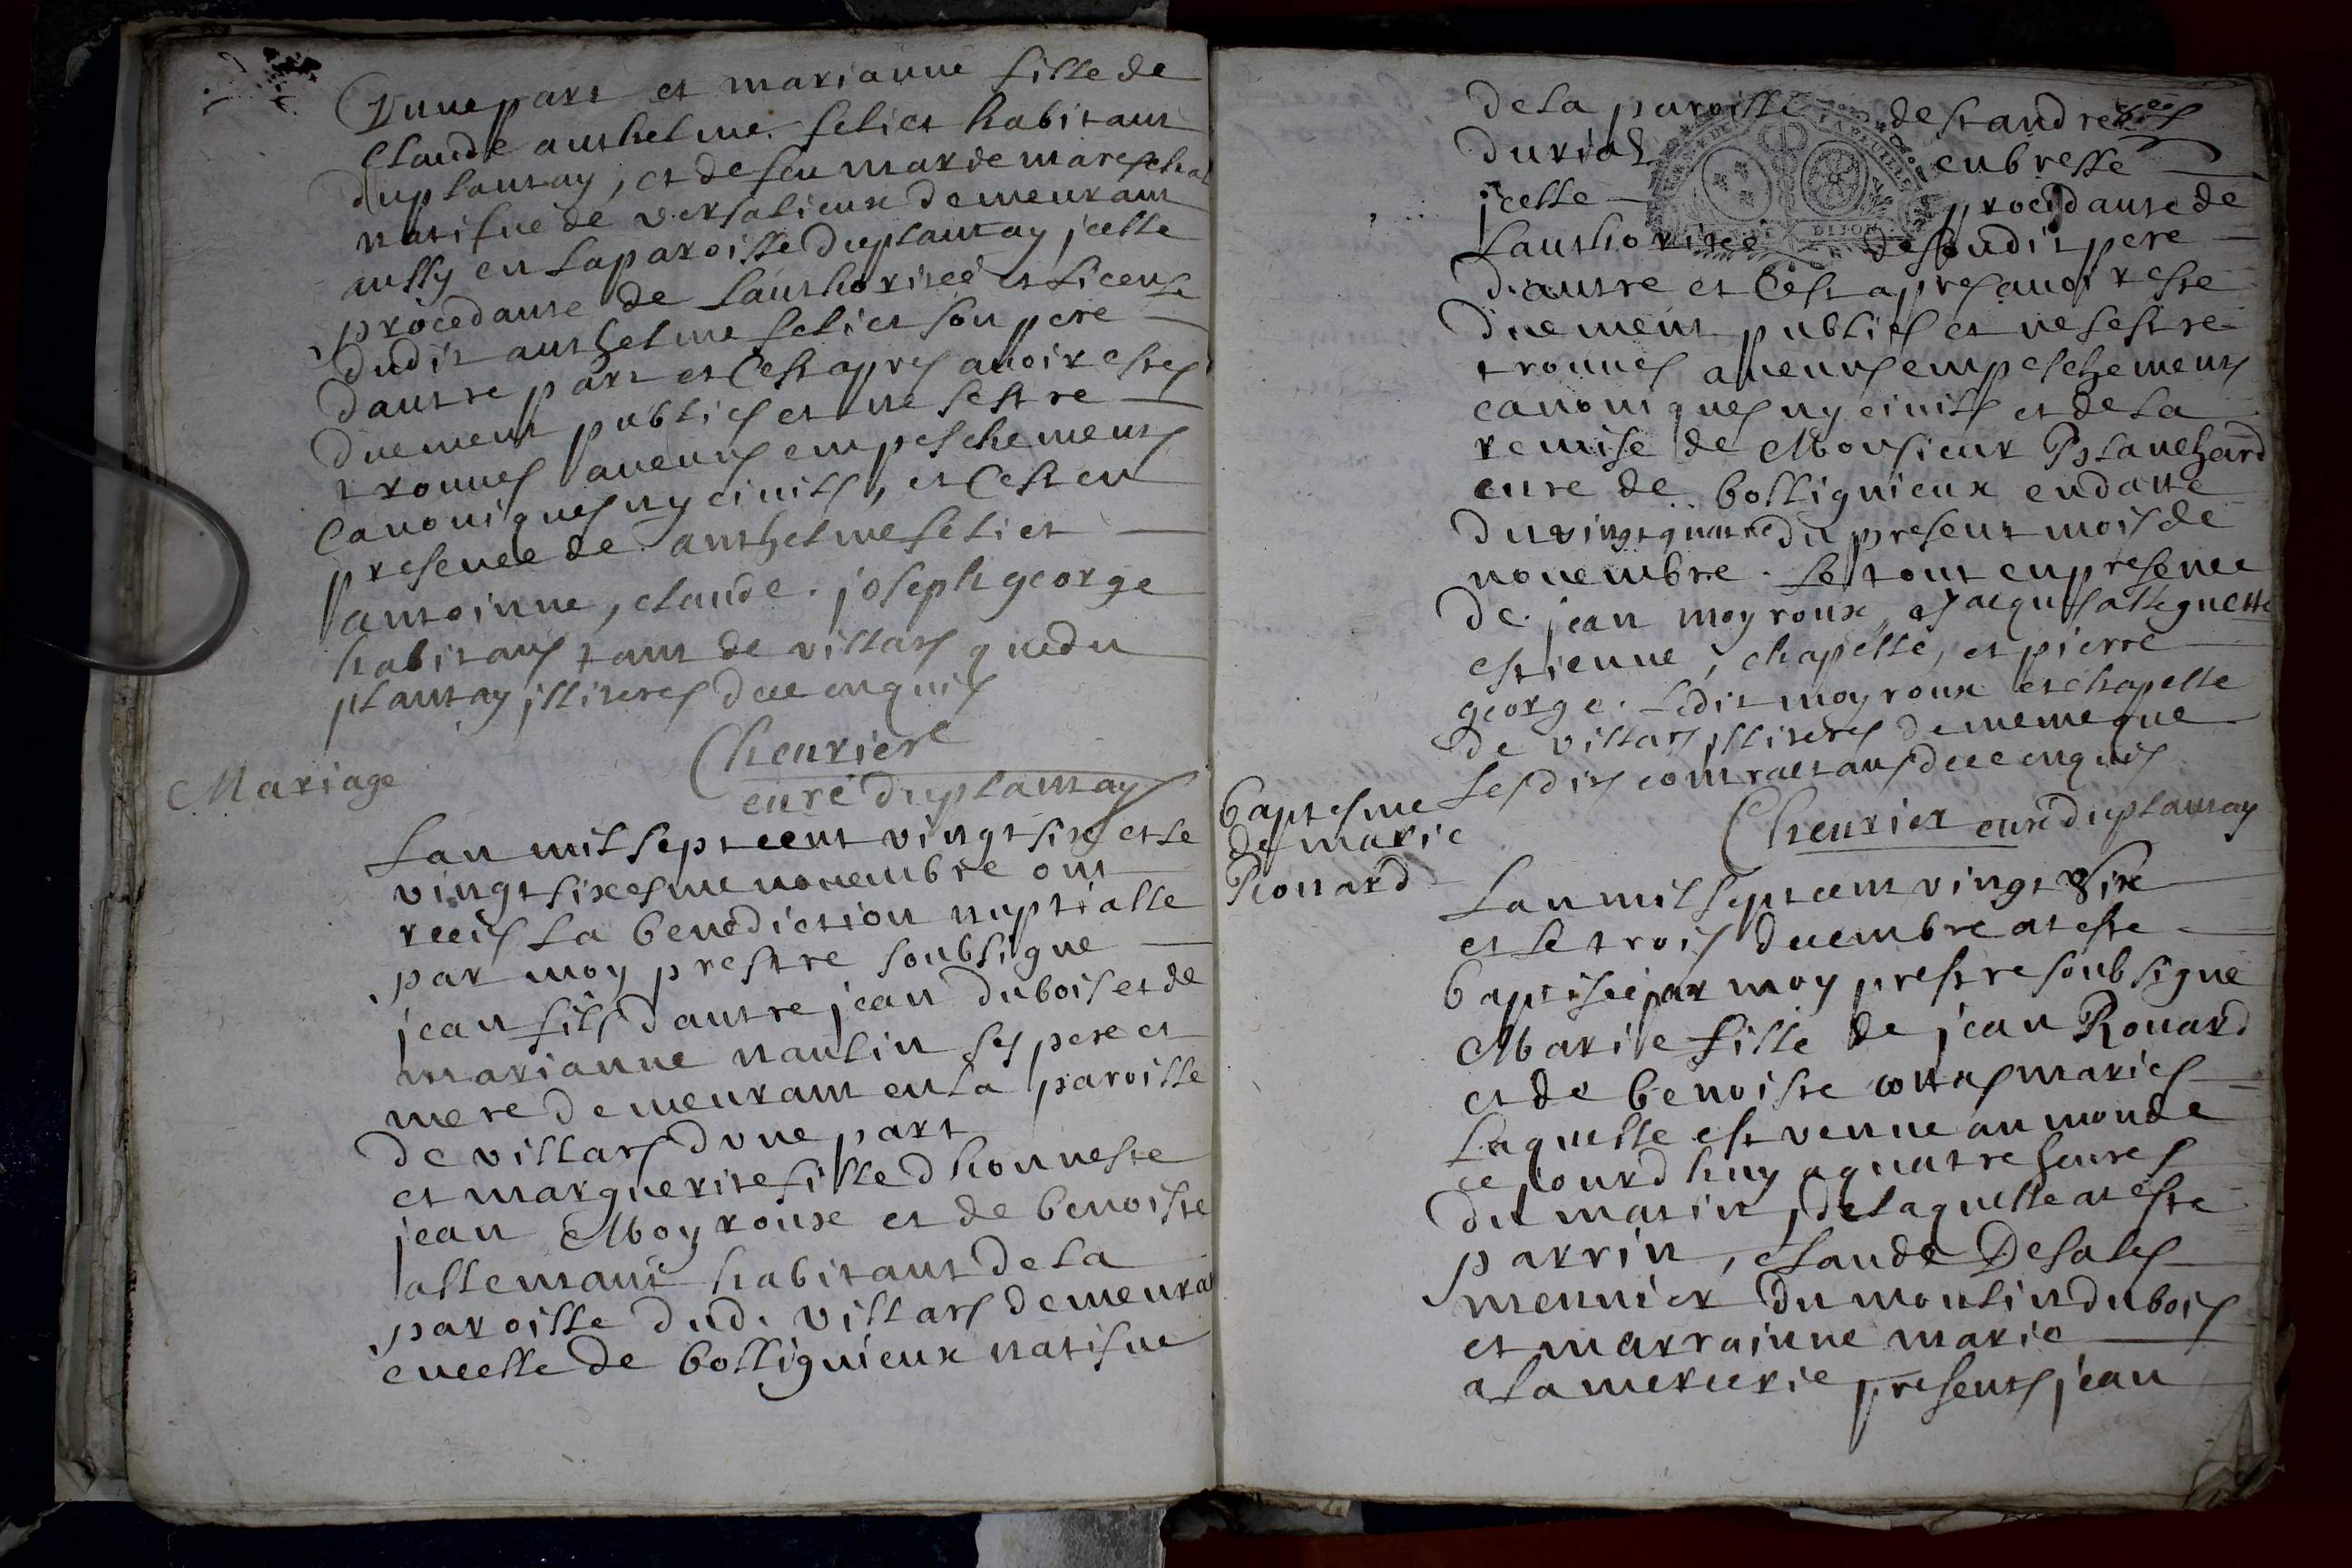 Dune part et marianne fille de
Claude anthelme feliet habitant
duplantay, et de feu marie mareschal
natifue de versalieux demeurant
aussy en la paroisse duplantay jcelle
procedante de lauthoritee et license
dudit anthelme feliet son pere
dautre part et Cest apres auoir estes
duement publies et ne sest re
trouues aucuns empeschements
Canoniques ny ciuils, et Cest en
presence de anthelme feliet
antoinne, claude. joseph george
habitans tant de villars quedu
plantay jlliteres dce enquis
Cheuriere
curé duplantay
Mariage
Lan mil sept cent vingt six et le
vingt sixesme nouembre ont
receus la benediction nuptialle
par moy prestre soubsigne
jean fils dautre jean dubois et de
marianne naulin ses pere et
mere demeurant en la paroisse
de villars dune part
et marguerite fille dhonneste
jean Moyroux et de benoiste
allemant habitant de la
paroisse dud. villars demeurat
en celle de bollignieux natifue
de la paroisse de st andre
duriat en bresse
jcelle procedante de
lauthoritee de sondit pere
dautre et Cest apres auoir este
duement publies et ne sest re
trouues aucuns empeschements
canoniques ny ciuils et de la
remise de Monsieur Planchard
cure de bollignieux en datte
du vingt quatre du present mois de
nouembre. le tout en presence
de jean moyroux, Jacques
estienne, chapelle, et pierre
george. ledit moyroux et chapelle
de villars jlliteres de meme que
lesdits contractans dce enquis
Cheurier curé duplantay
baptesme
de marie
Rouard
Lan mil sept cent vingt six
et le trois decembre at este
baptisée par moy prestre soubsigne
Marie fille de jean Rouard
et de benoiste cottas maries
laquelle est venue au monde
ce jourdhuy a quatre heures
du matin, de laquelle at este
parrin, claude Desales
meunier du moulin dubois
et marrainne marie
alamercerie presents jean